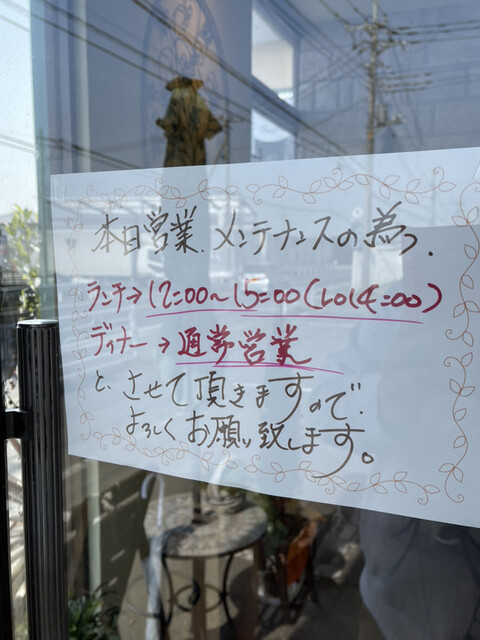 本日営業、メンテナンスの為、
ランチ→12:00〜15:00(Lo14:00)
ディナー→通常営業
と、させて頂きますので、
よろしくお願い致します。